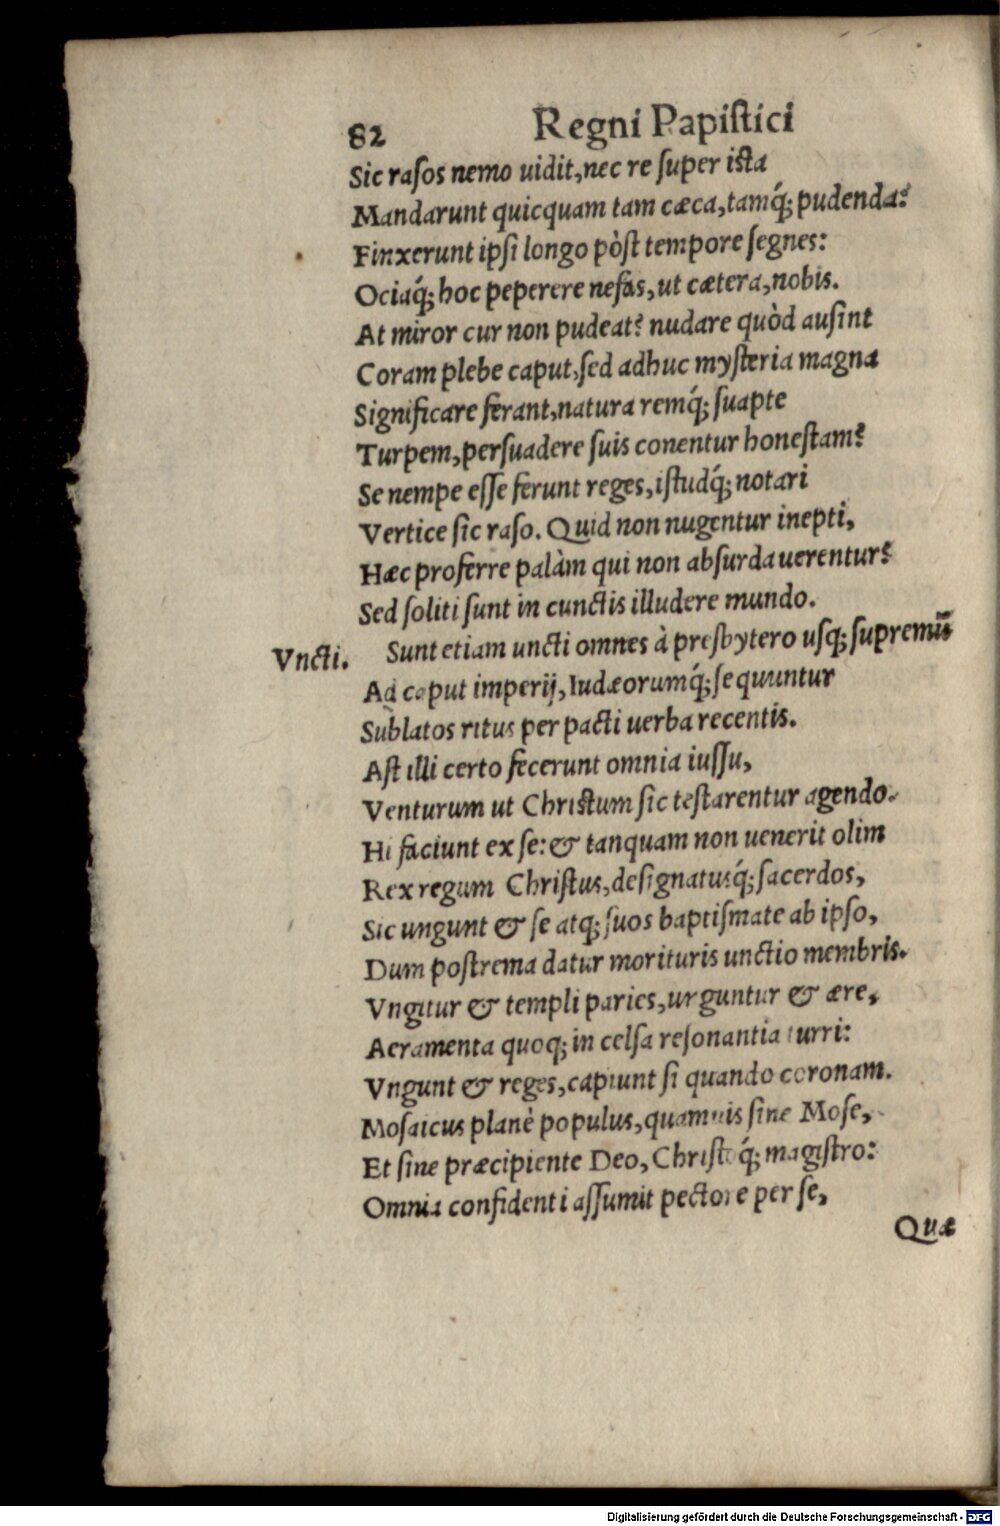 82 Regni Papistici
Sic rasos nemo uidit, nec re super ista
Mandarunt quicquam tam cæca, tamq́; pudenda?
Finxerunt ipsi longo pòst tempore segnes:
Ociaq́; hoc peperere nefas, ut cætera, nobis.
At miror cur non pudeat? nudare quòd ausint
Coram plebe caput, sed adhuc mysteria magna
Significare ferant, natura remq́; suapte
Turpem, persuadere suis conentur honestam?
Se nempe esse ferunt reges, istudq́; notari
Vertice sic raso. Quid non nugentur inepti,
Hæc proferre palàm qui non absurda uerentur?
Sed soliti sunt in cunctis illudere mundo.
Vncti. Sunt etiam uncti omnes à presbytero usq; supremũ
Ad caput imperij, Iudæorumq́; sequuntur
Sublatos ritus per pacti uerba recentis.
Ast illi certo fecerunt omnia iussu,
Venturum ut Christum sic testarentur agendo.
Hi faciunt ex se: & tanquam non uenerit olim
Rex regum Christus, designatusq́; sacerdos,
Sic ungunt & se atq; suos baptismate ab ipso,
Dum postrema datur morituris unctio membris.
Vngitur & templi paries, unguntur & ære,
Aeramenta quoq; in celsa resonantia turri:
Vngunt & reges, capiunt si quando coronam.
Mosaicus planè populus, quamuis sine Mose,
Et sine præcipiente Deo, Christoq́; magistro:
Omnia confidenti assumit pectore per se,
Quæ
Digitalisierung gefördert durch die Deutsche Forschungsgemeinschaft - DFG